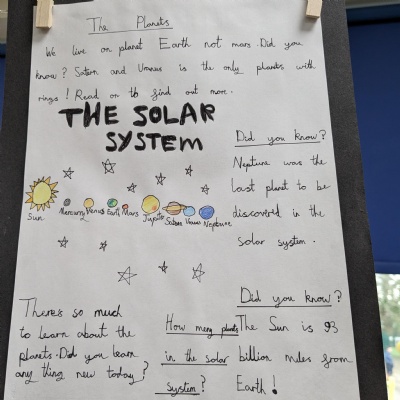 The Planets
We live on planet Earth not mars. Did you
know? Saturn and Uranus is the only planets with
rings! Read on to find out more.
THE SOLAR
SYSTEM
Did you know?
Neptune was the
last planet to be
discovered in the
solar system.
Sun Mercury Venus Earth Mars Jupiter Saturn Uranus Neptune
Theres so much
to learn about the
planets. Did you learn
any thing new today?
How many planets
in the solar
system?
Did you know?
The Sun is 93
billion miles from
Earth!